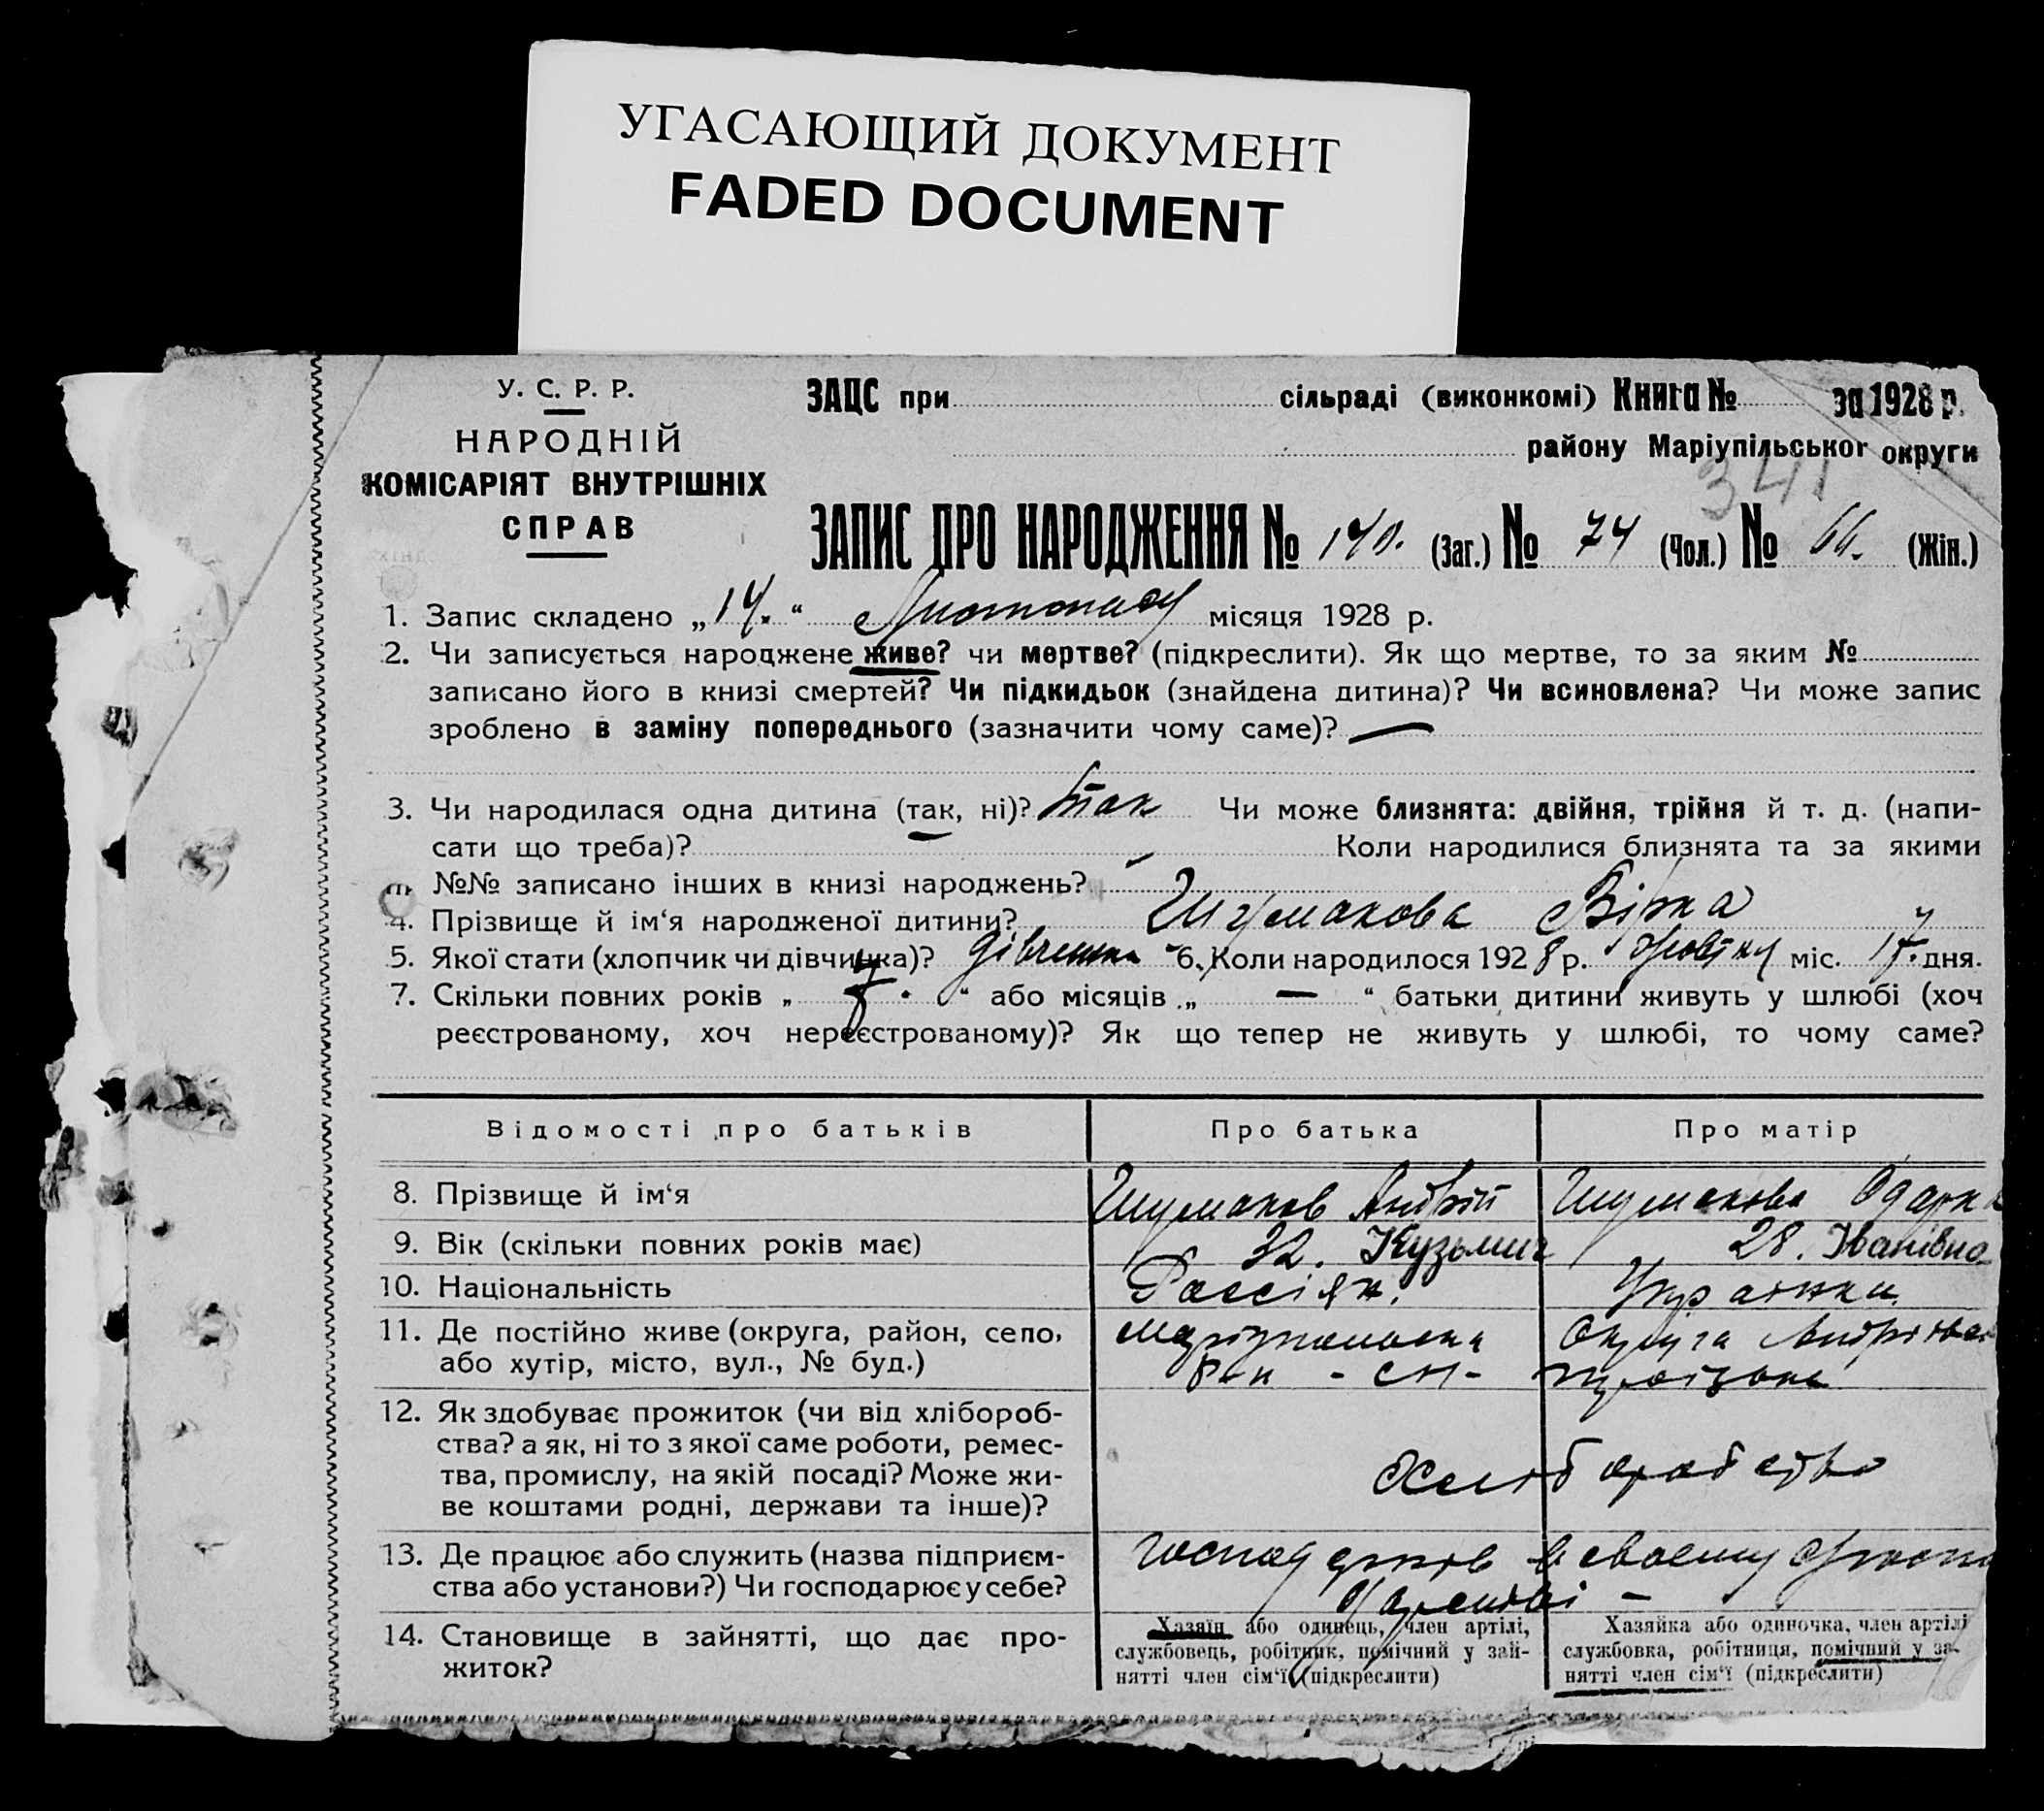 УГАСАЮЩИЙ ДОКУМЕНТ
FADED DOCUMENT
У. С. Р. Р.
НАРОДНІЙ
КОМІСАРІЯТ ВНУТРІШНІХ
СПРАВ
ЗАЦС при сільраді (виконкомі) Книга № за 1928 р.
району Маріупільської округи
341
ЗАПИС ПРО НАРОДЖЕННЯ № 140. (Заг.) № 74 (Чол.) № 66. (Жін.)
1. Запис складено „14.“ Листопаду місяця 1928 р.
2. Чи записується народжене живе? чи мертве? (підкреслити). Як що мертве, то за яким №
записано його в книзі смертей? Чи підкидьок (знайдена дитина)? Чи всиновлена? Чи може запис
зроблено в заміну попереднього (зазначити чому саме)? —
3. Чи народилася одна дитина (так, ні)? так Чи може близнята: двійня, трійня й т. д. (напи-
сати що треба)? Коли народилися близнята та за якими
№№ записано інших в книзі народжень?
4. Прізвище й ім‘я народженої дитини? Шумакова Вірка
5. Якої стати (хлопчик чи дівчинка)? дівчинка 6. Коли народилось 1928 р. Жовтню міс. 17. дня.
7. Скільки повних років „ “ або місяців „ — “ батьки дитини живуть у шлюбі (хоч
реєстрованому, хоч нереєстрованому)? Як що тепер не живуть у шлюбі, то чому саме?
Відомості про батьків Про батька Про матір
8. Прізвище й ім‘я Шумаков Андрій Шумакова Одарка
9. Вік (скільки повних років має) 32. Кузьмич 28. Іванівна
10. Національність Россіян. Українка
11. Де постійно живе (округа, район, село, Маріупольска Округа
або хутір, місто, вул., № буд.) р-н - сп-
12. Як здобуває прожиток (чи від хлібороб-
ства? а як, ні то з якої саме роботи, ремес-
тва, промислу, на якій посаді? Може жи-
ве коштами родні, держави та інше)?
Хліборобство
13. Де працює або служить (назва підприєм- в своему
ства або установи?) Чи господарює у себе?
14. Становище в зайнятті, що дає про-
житок?
Хазяїн або одинець, член артілі,
службовець, робітник, помічний у зай-
нятті член сім‘ї (підкреслити)
Хазяйка або одиночка, член артілі
службовка, робітниця, помічний у за-
нятті член сім‘ї (підкреслити)